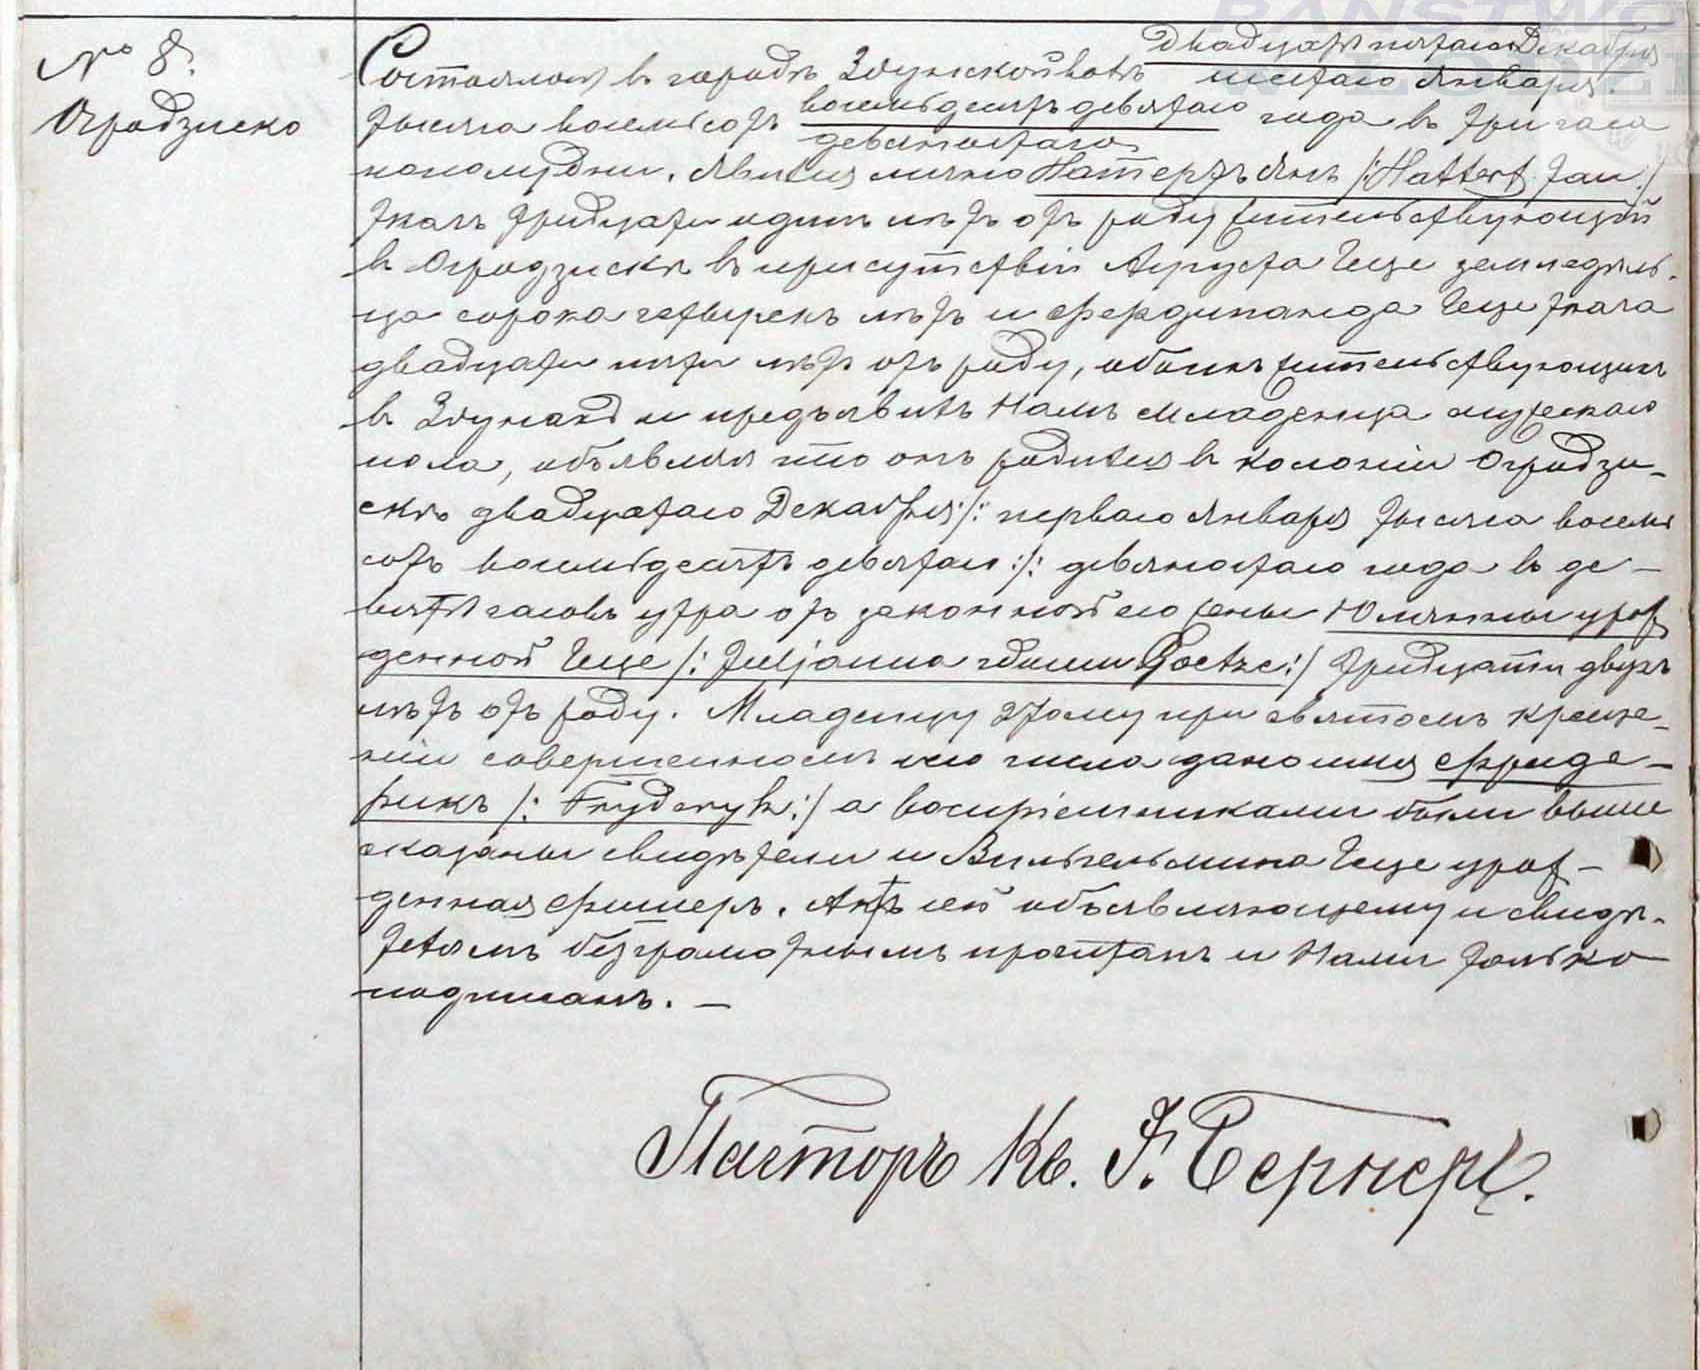 № 8.
Огродзиско
двадцать пятаго Декабря
Состоялось въ городѣ Здунской волѣ шестаго Января
тысяча восемьсотъ восемьдесятъ девятаго года въ три часа
девяностаго
пополудни. Явился лично Гаттертъ Янъ /:Hattert Jan:/
ткачъ тридцати одинъ лѣтъ отъ роду жительствующій
въ Огродзискѣ въ присутствіи Августа Геце земледѣль-
ца сорока четырехъ лѣтъ и Фердинанда Геце ткача
двадцати пяти лѣтъ отъ роду, обоихъ жительствующихъ
въ и предъявилъ Намъ младенца мужескаго
пола, объявляя что онъ родился въ колоніи Огродзи-
скѣ двадцатаго Декабря /: перваго Января тысяча восемь
сотъ восемьдесятъ девятаго :/: девяностаго года въ де-
вять часовъ утра отъ законной его жены Юліянны урож
денной Геце /: Juljanna Goetze:/ тридцати двухъ
лѣтъ отъ роду. Младенцу этому при святомъ креще-
ніи совершенномъ сего числа дано имя Фриде-
рикъ /: Fryderyk:/ а воспріемниками были выше
сказаны свидѣтели и Вильгельмина Геце урож-
денная Фишеръ. Актъ сей объявляющему и свидѣ-
телямъ безграмотнымъ прочитанъ и Нами только
подписанъ. —
Пасторъ Кс. Бернеръ.